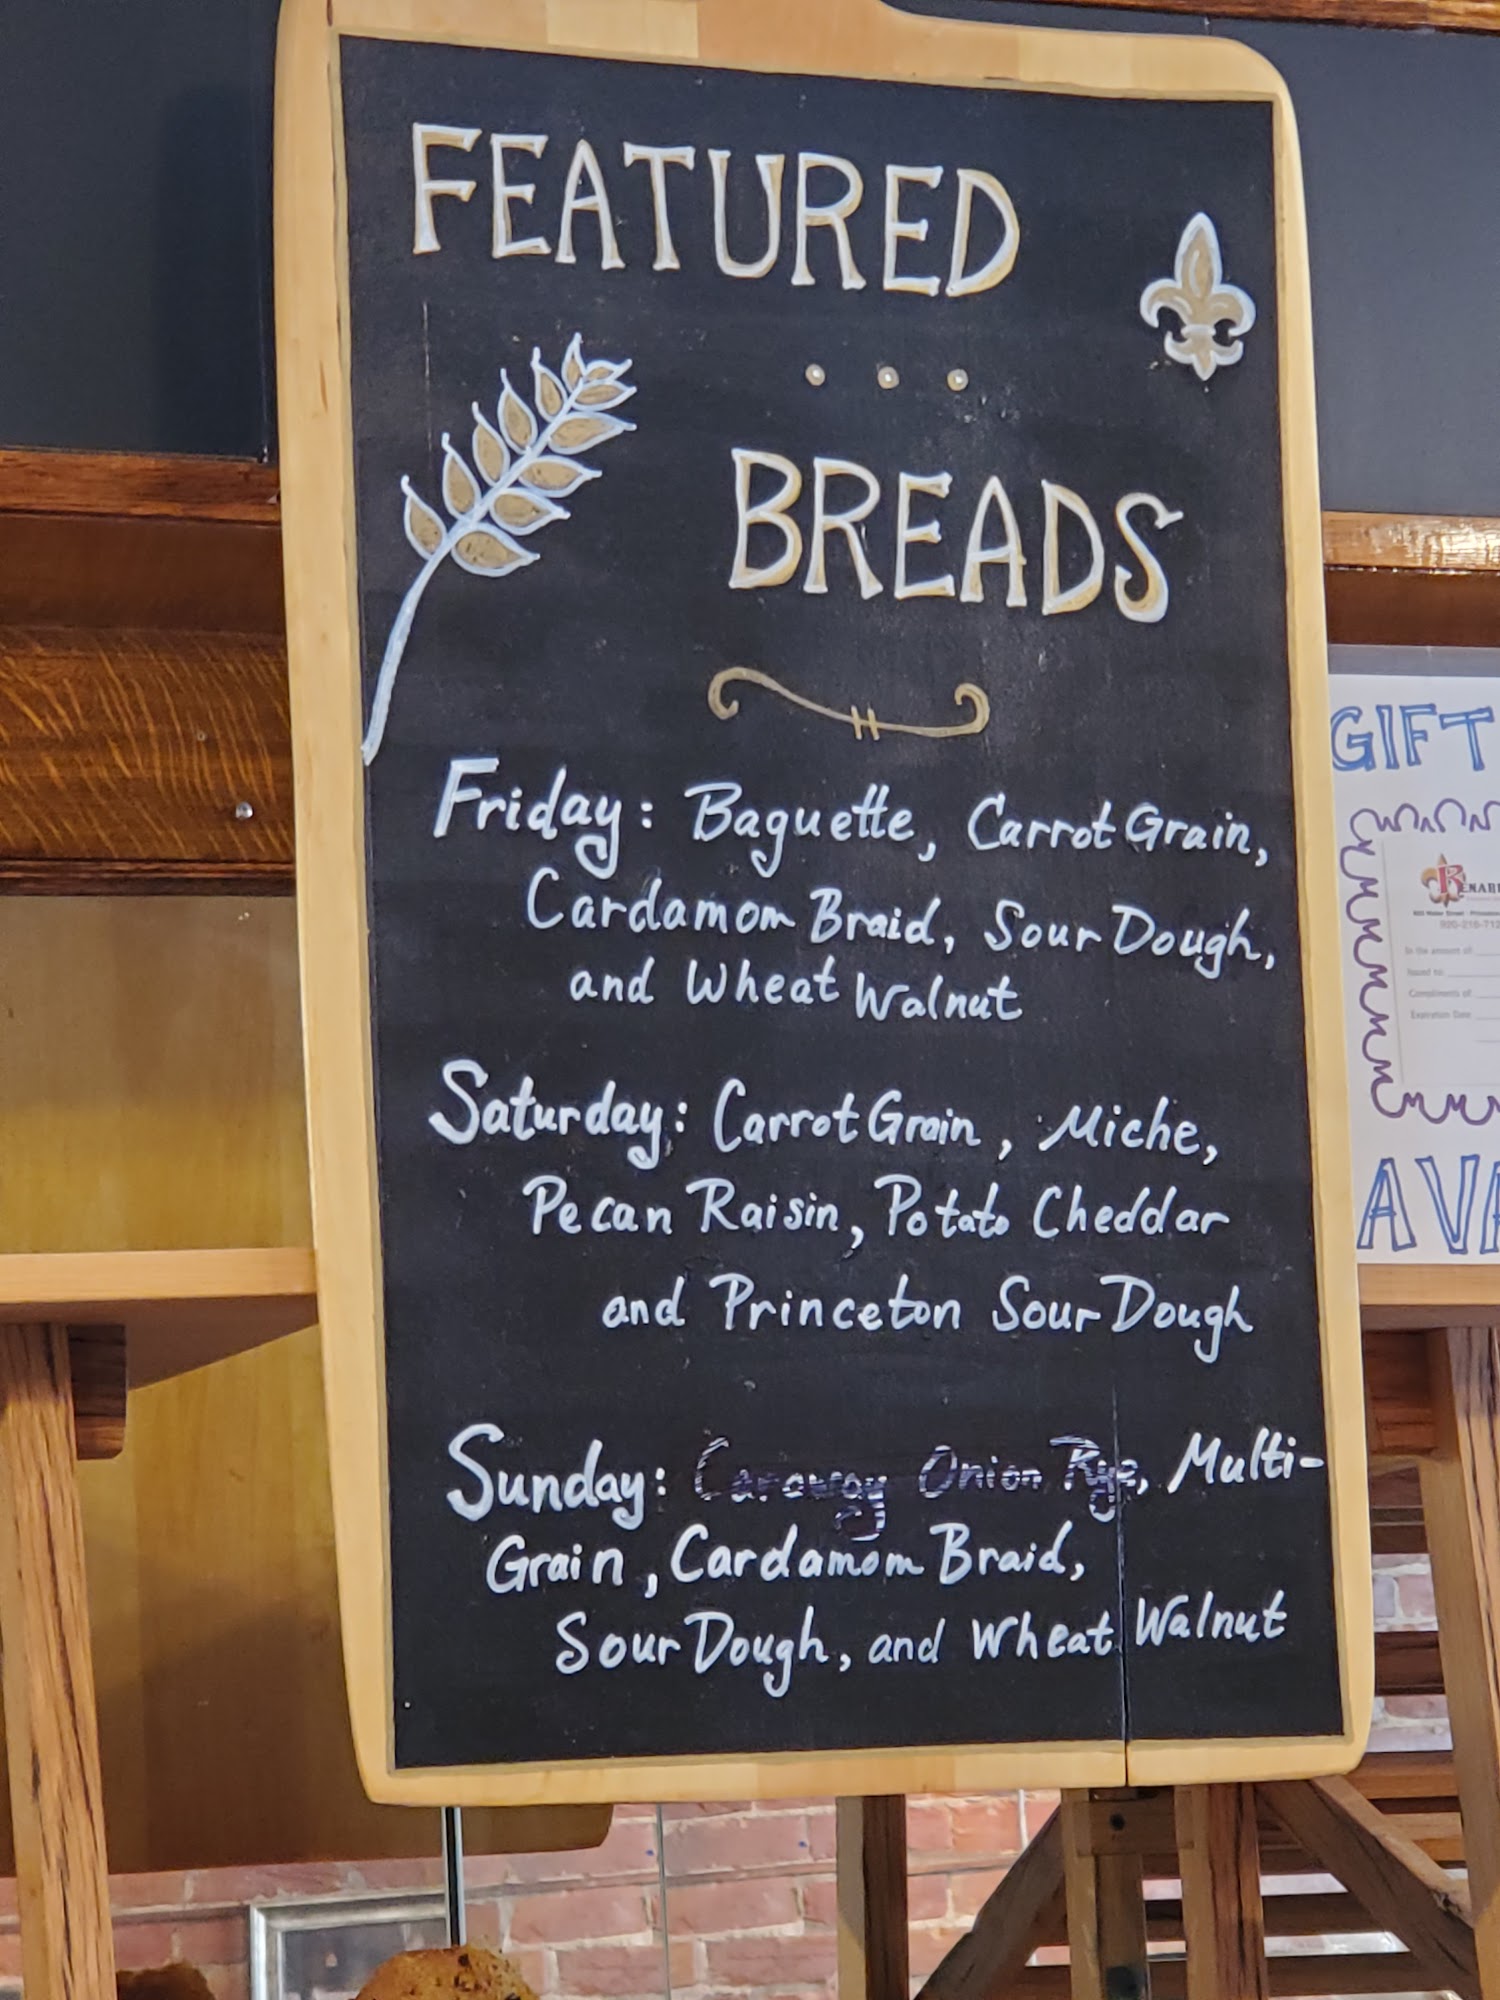 FEATURED
BREADS
Friday: Baguette, Carrot Grain,
Cardamom Braid, Sour Dough,
and Wheat Walnut
Saturday: Carrot Grain, Miche,
Pecan Raisin, Potato Cheddar
and Princeton Sour Dough
Sunday: Caraway Onion Rye, Multi-
Grain, Cardamom Braid,
Sour Dough, and Wheat Walnut
GIFT
In the amount of:
Issued to:
Compliments of:
Expiration Date